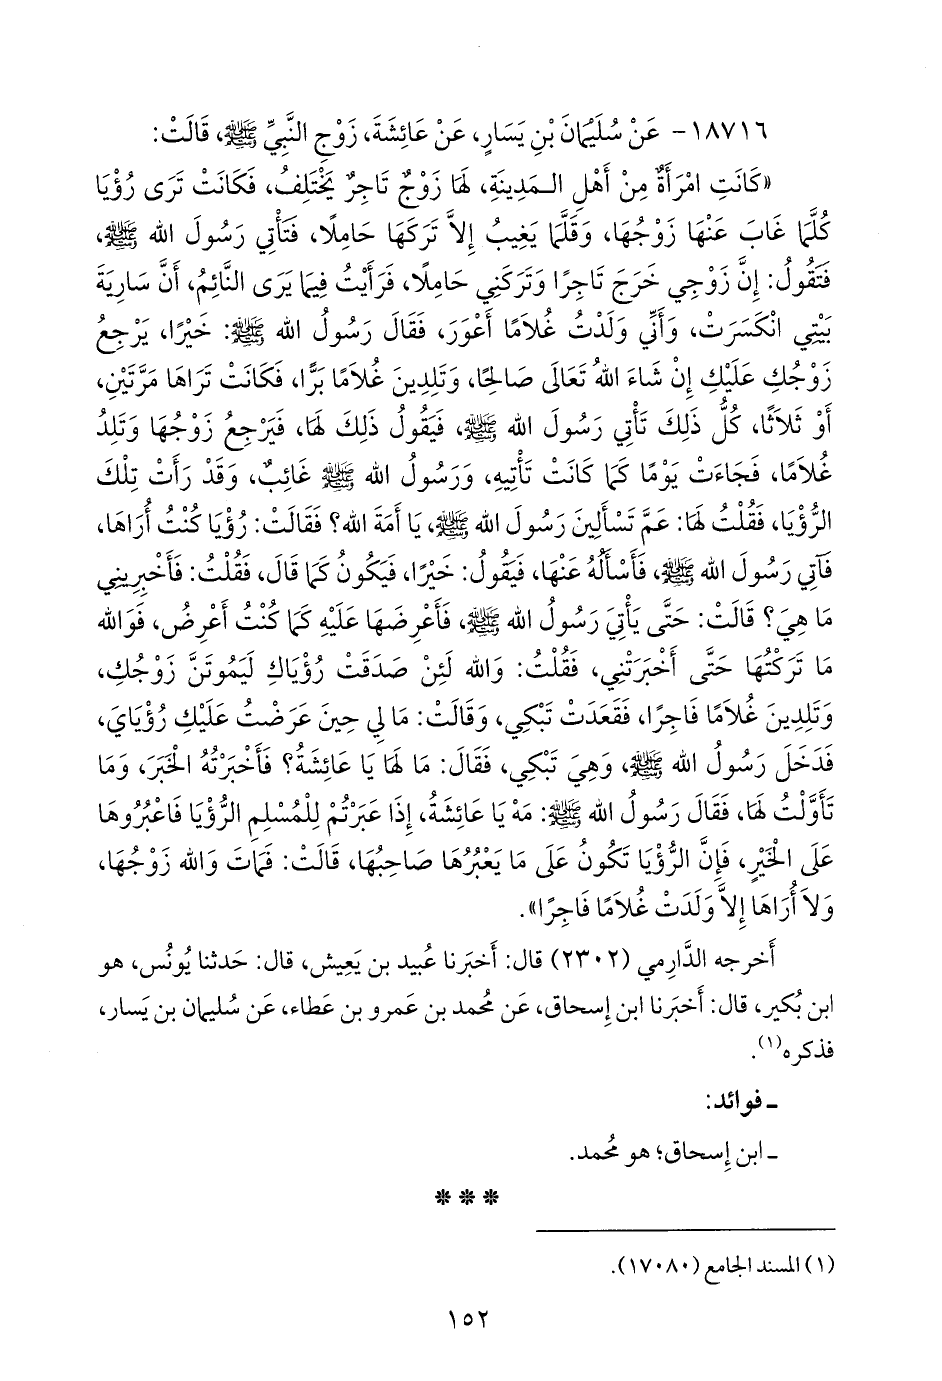 ١٨٧١٦- عَنْ سُلَيْمَانَ بْنِ يَسَارٍ، عَنْ عَائِشَةَ، زَوْجِ النَّبِيِّ ﷺ، قَالَتْ:
«كَانَتِ امْرَأَةٌ مِنْ أَهْلِ الـمَدِينَةِ، لَهَا زَوْجٌ تَاجِرٌ يَخْتَلِفُ، فَكَانَتْ تَرَى رُؤْيَا
كُلَّمَا غَابَ عَنْهَا زَوْجُهَا، وَقَلَّمَا يَغِيبُ إِلاَّ تَرَكَهَا حَامِلًا، فَتَأْتِي رَسُولَ الله ﷺ،
فَتَقُولُ: إِنَّ زَوْجِي خَرَجَ تَاجِرًا وَتَرَكَنِي حَامِلًا، فَرَأَيْتُ فِيمَا يَرَى النَّائِمُ، أَنَّ سَارِيَةَ
بَيْتِي انْكَسَرَتْ، وَأَنِّي وَلَدْتُ غُلَامًا أَعْوَرَ، فَقَالَ رَسُولُ الله ﷺ: خَيْرًا، يَرْجِعُ
زَوْجُكِ عَلَيْكِ إِنْ شَاءَ اللهُ تَعَالَى صَالِحًا، وَتَلِدِينَ غُلَامًا بَرًّا، فَكَانَتْ تَرَاهَا مَرَّتَيْنِ،
أَوْ ثَلَاثًا، كُلُّ ذَلِكَ تَأْتِي رَسُولَ الله ﷺ، فَيَقُولُ ذَلِكَ لَهَا، فَيَرْجِعُ زَوْجُهَا وَتَلِدُ
غُلَامًا، فَجَاءَتْ يَوْمًا كَمَا كَانَتْ تَأْتِيهِ، وَرَسُولُ الله ﷺ غَائِبٌ، وَقَدْ رَأَتْ تِلْكَ
الرُّؤْيَا، فَقُلْتُ لَهَا: عَمَّ تَسْأَلِينَ رَسُولَ الله ﷺ، يَا أَمَةَ الله؟ فَقَالَتْ: رُؤْيَا كُنْتُ أُرَاهَا،
فَآتِي رَسُولَ الله ﷺ، فَأَسْأَلُهُ عَنْهَا، فَيَقُولُ: خَيْرًا، فَيَكُونُ كَمَا قَالَ، فَقُلْتُ: فَأَخْبِرِينِي
مَا هِيَ؟ قَالَتْ: حَتَّى يَأْتِيَ رَسُولُ الله ﷺ، فَأَعْرِضَهَا عَلَيْهِ كَمَا كُنْتُ أَعْرِضُ، فَوَالله
مَا تَرَكْتُهَا حَتَّى أَخْبَرَتْنِي، فَقُلْتُ: وَالله لَئِنْ صَدَقَتْ رُؤْيَاكِ لَيَمُوتَنَّ زَوْجُكِ،
وَتَلِدِينَ غُلَامًا فَاجِرًا، فَقَعَدَتْ تَبْكِي، وَقَالَتْ: مَا لِي حِينَ عَرَضْتُ عَلَيْكِ رُؤْيَايَ،
فَدَخَلَ رَسُولُ الله ﷺ، وَهِيَ تَبْكِي، فَقَالَ: مَا لَهَا يَا عَائِشَةُ؟ فَأَخْبَرْتُهُ الْخَبَرَ، وَمَا
تَأَوَّلْتُ لَهَا، فَقَالَ رَسُولُ الله ﷺ: مَهْ يَا عَائِشَةُ، إِذَا عَبَرْتُمْ لِلْمُسْلِمِ الرُّؤْيَا فَاعْبُرُوهَا
عَلَى الْخَيْرِ، فَإِنَّ الرُّؤْيَا تَكُونُ عَلَى مَا يَعْبُرُهَا صَاحِبُهَا، قَالَتْ: فَمَاتَ وَالله زَوْجُهَا،
وَلاَ أُرَاهَا إِلاَّ وَلَدَتْ غُلَامًا فَاجِرًا».
أَخرجه الدَّارِمي (٢٣٠٢) قال: أَخبَرنا عُبيد بن يَعِيش، قال: حَدثنا يُونُس، هو
ابن بُكير، قال: أَخبَرنا ابن إِسحاق، عَن مُحمد بن عَمرو بن عَطاء، عَن سُليمان بن يَسار،
فذكره(١).
ـ فوائد:
ـ ابن إِسحاق؛ هو مُحمد.
* * *
(١) المسند الجامع (١٧٠٨٠).
١٥٢